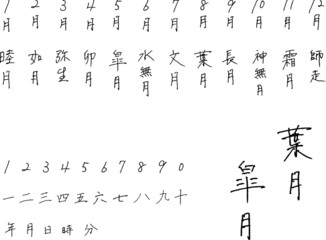 1月 2月 3月 4月 5月 6月 7月 8月 9月 10月 11月 12月
睦月 如月 弥生 卯月 皐月 水無月 文月 葉月 長月 神無月 霜月 師走
葉月
皐月
1 2 3 4 5 6 7 8 9 0
一 二 三 四 五 六 七 八 九 十
年 月 日 時 分